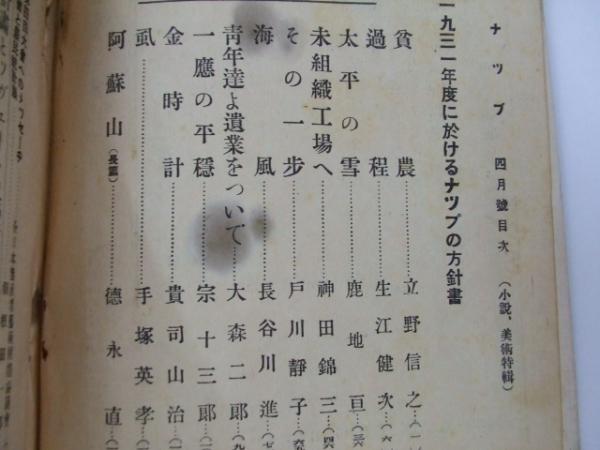 ナツプ 四月號目次 (小説、美術特輯)
一九三一年度に於けるナツプの方針書
貧農……立野信之
過程……生江健次
太平の雪……鹿地亘
未組織工場へ……神田錦三
その一步……戸川靜子
海風……長谷川進
靑年達よ遺業をついで……大森二郎
一應の平穩……宗十三郎
金時計……貴司山治
虱……手塚英孝
阿蘇山(長篇)……德永直